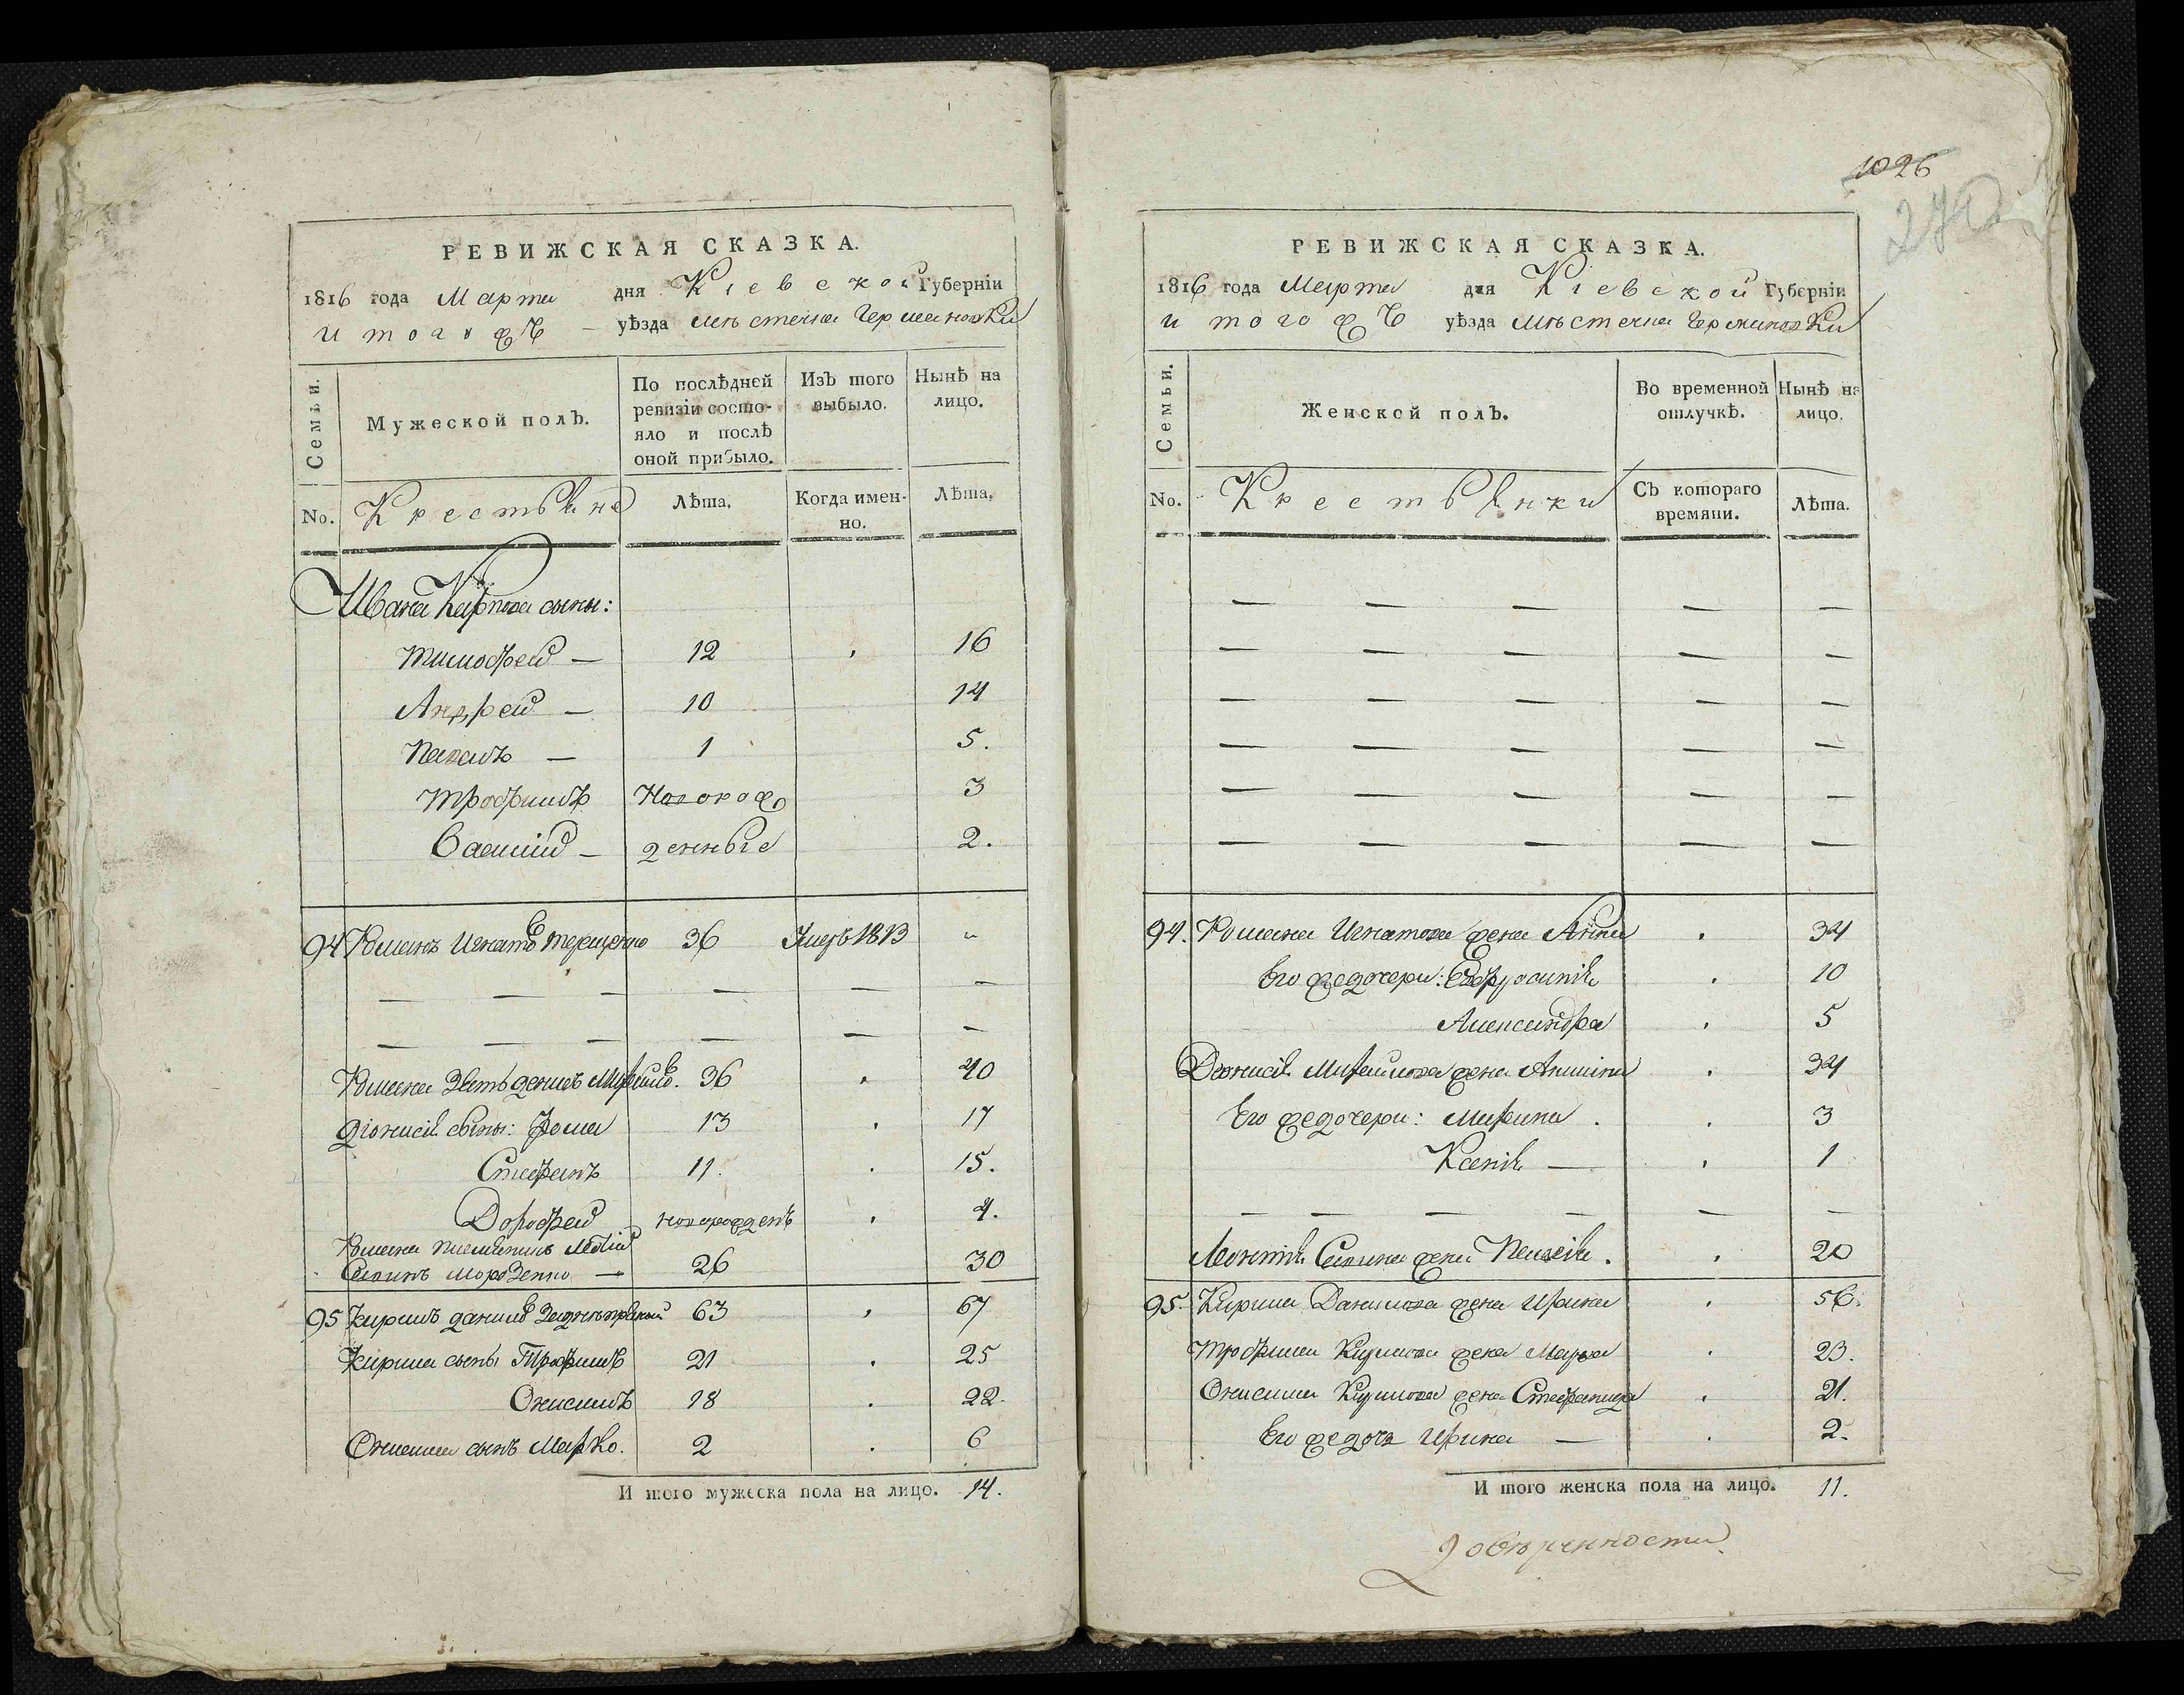 РЕВИЖСКАЯ СКАЗКА.
1816 года Марта дня Кіевской Губерніи
и того жъ — уѣзда мѣстечка Германовки
Семьи. Мужеской полъ. По послѣдней ревизіи состояло и послѣ оной прибыло. Изъ того выбыло. Нынѣ на лицо.
No. Крестьяне Лѣта. Когда именно. Лѣта.
Ивана Карпова сыны:
Тимофей — 12 16
Андрей — 10 14
Павелъ — 1 5.
Трофимъ Новорож 3
Василій — денныіе 2.
94 Романъ Игнатовъ Терещенко 36 Умеръ 1813 —
— — — — — —
— — — — — —
Романа Зять Денисъ Михайлов. 36 40
Діонисія сыны: Фома 13 17
Стефанъ 11. 15.
Дорофей новорожденъ 4.
Романа племянникъ Леонтій
Савинъ Морозенко — 26 30
95 Кирилъ Данилов Заднепрвский 63 67
Кирила сыны Трофимъ 21 25
Онисимъ 18 22.
Онисима сынъ Марко. 2 6
И того мужеска пола на лицо. 14.
1026
РЕВИЖСКАЯ СКАЗКА.
1816 года Марта дня Кіевской Губерніи
и того жъ уѣзда Мѣстечка Германовки
Семьи. Женской полъ. Во временной отлучкѣ. Нынѣ на лицо.
No. Крестьянки Съ котораго времяни. Лѣта.
— — — — —
— — — — —
— — — — —
— — — — —
— — — — —
— — — — —
94. Романа Игнатова жена Анна 34
Его же дочери: Евфросинія 10
Александра 5
Діонисія Михайлова жена Акилина 34
Его же дочери: Марина . 3
Ксенія — 1
— — — — — —
Леонтія Савина жена Пелагія . 20
95. Кирила Данилова жена Ирина 56.
Трофима Кирилова жена Марья 23.
Онисима Кирилова жена Стефанида 21.
Его же дочь Ирина — 2.
И того женска пола на лицо. 11.
довѣренности